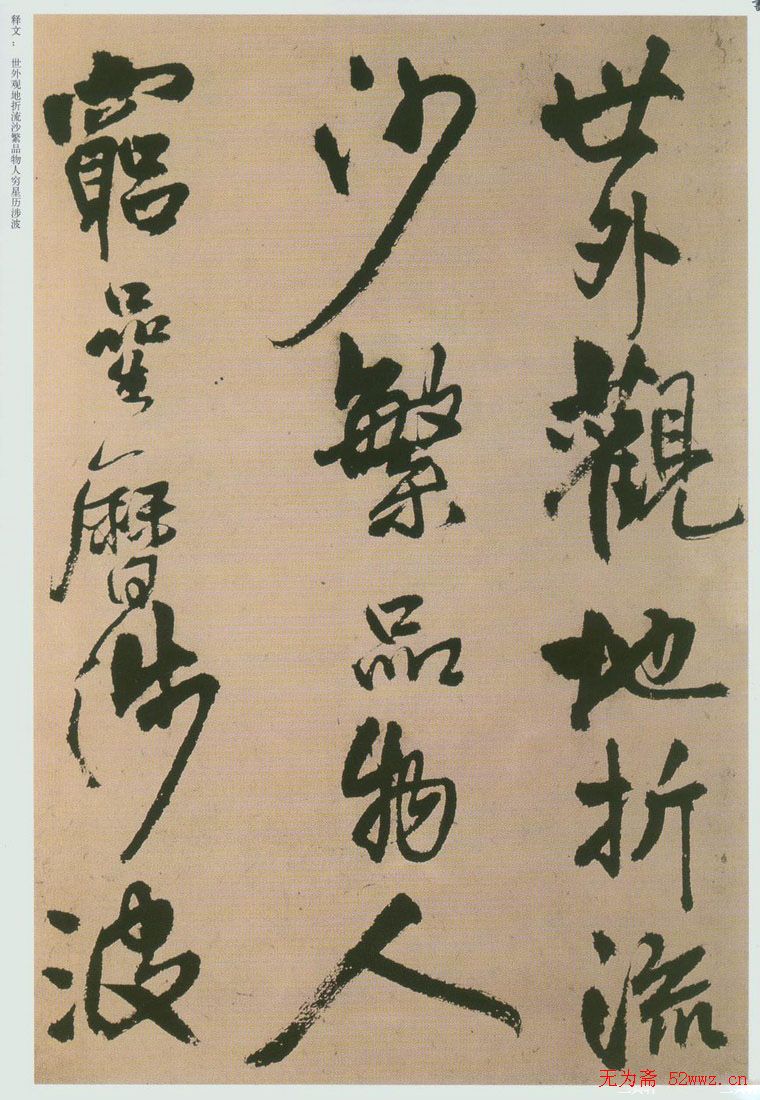 世外觀地折流
沙繁品物人
窮星曆涉波
释文： 世外观地折流沙繁品物人穷星历涉波
无为斋 52wwz.cn